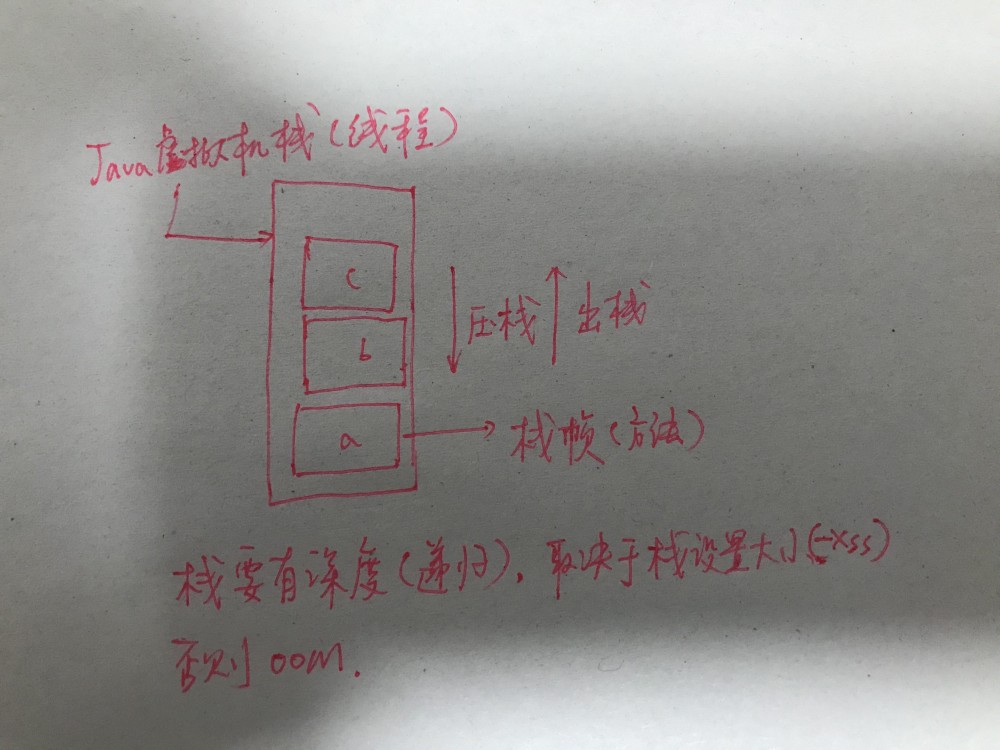 Java虚拟机栈(线程)
c
压栈 出栈
b
a 栈帧(方法)
栈要有深度(递归),取决于栈设置大小(-xss)
否则OOM.